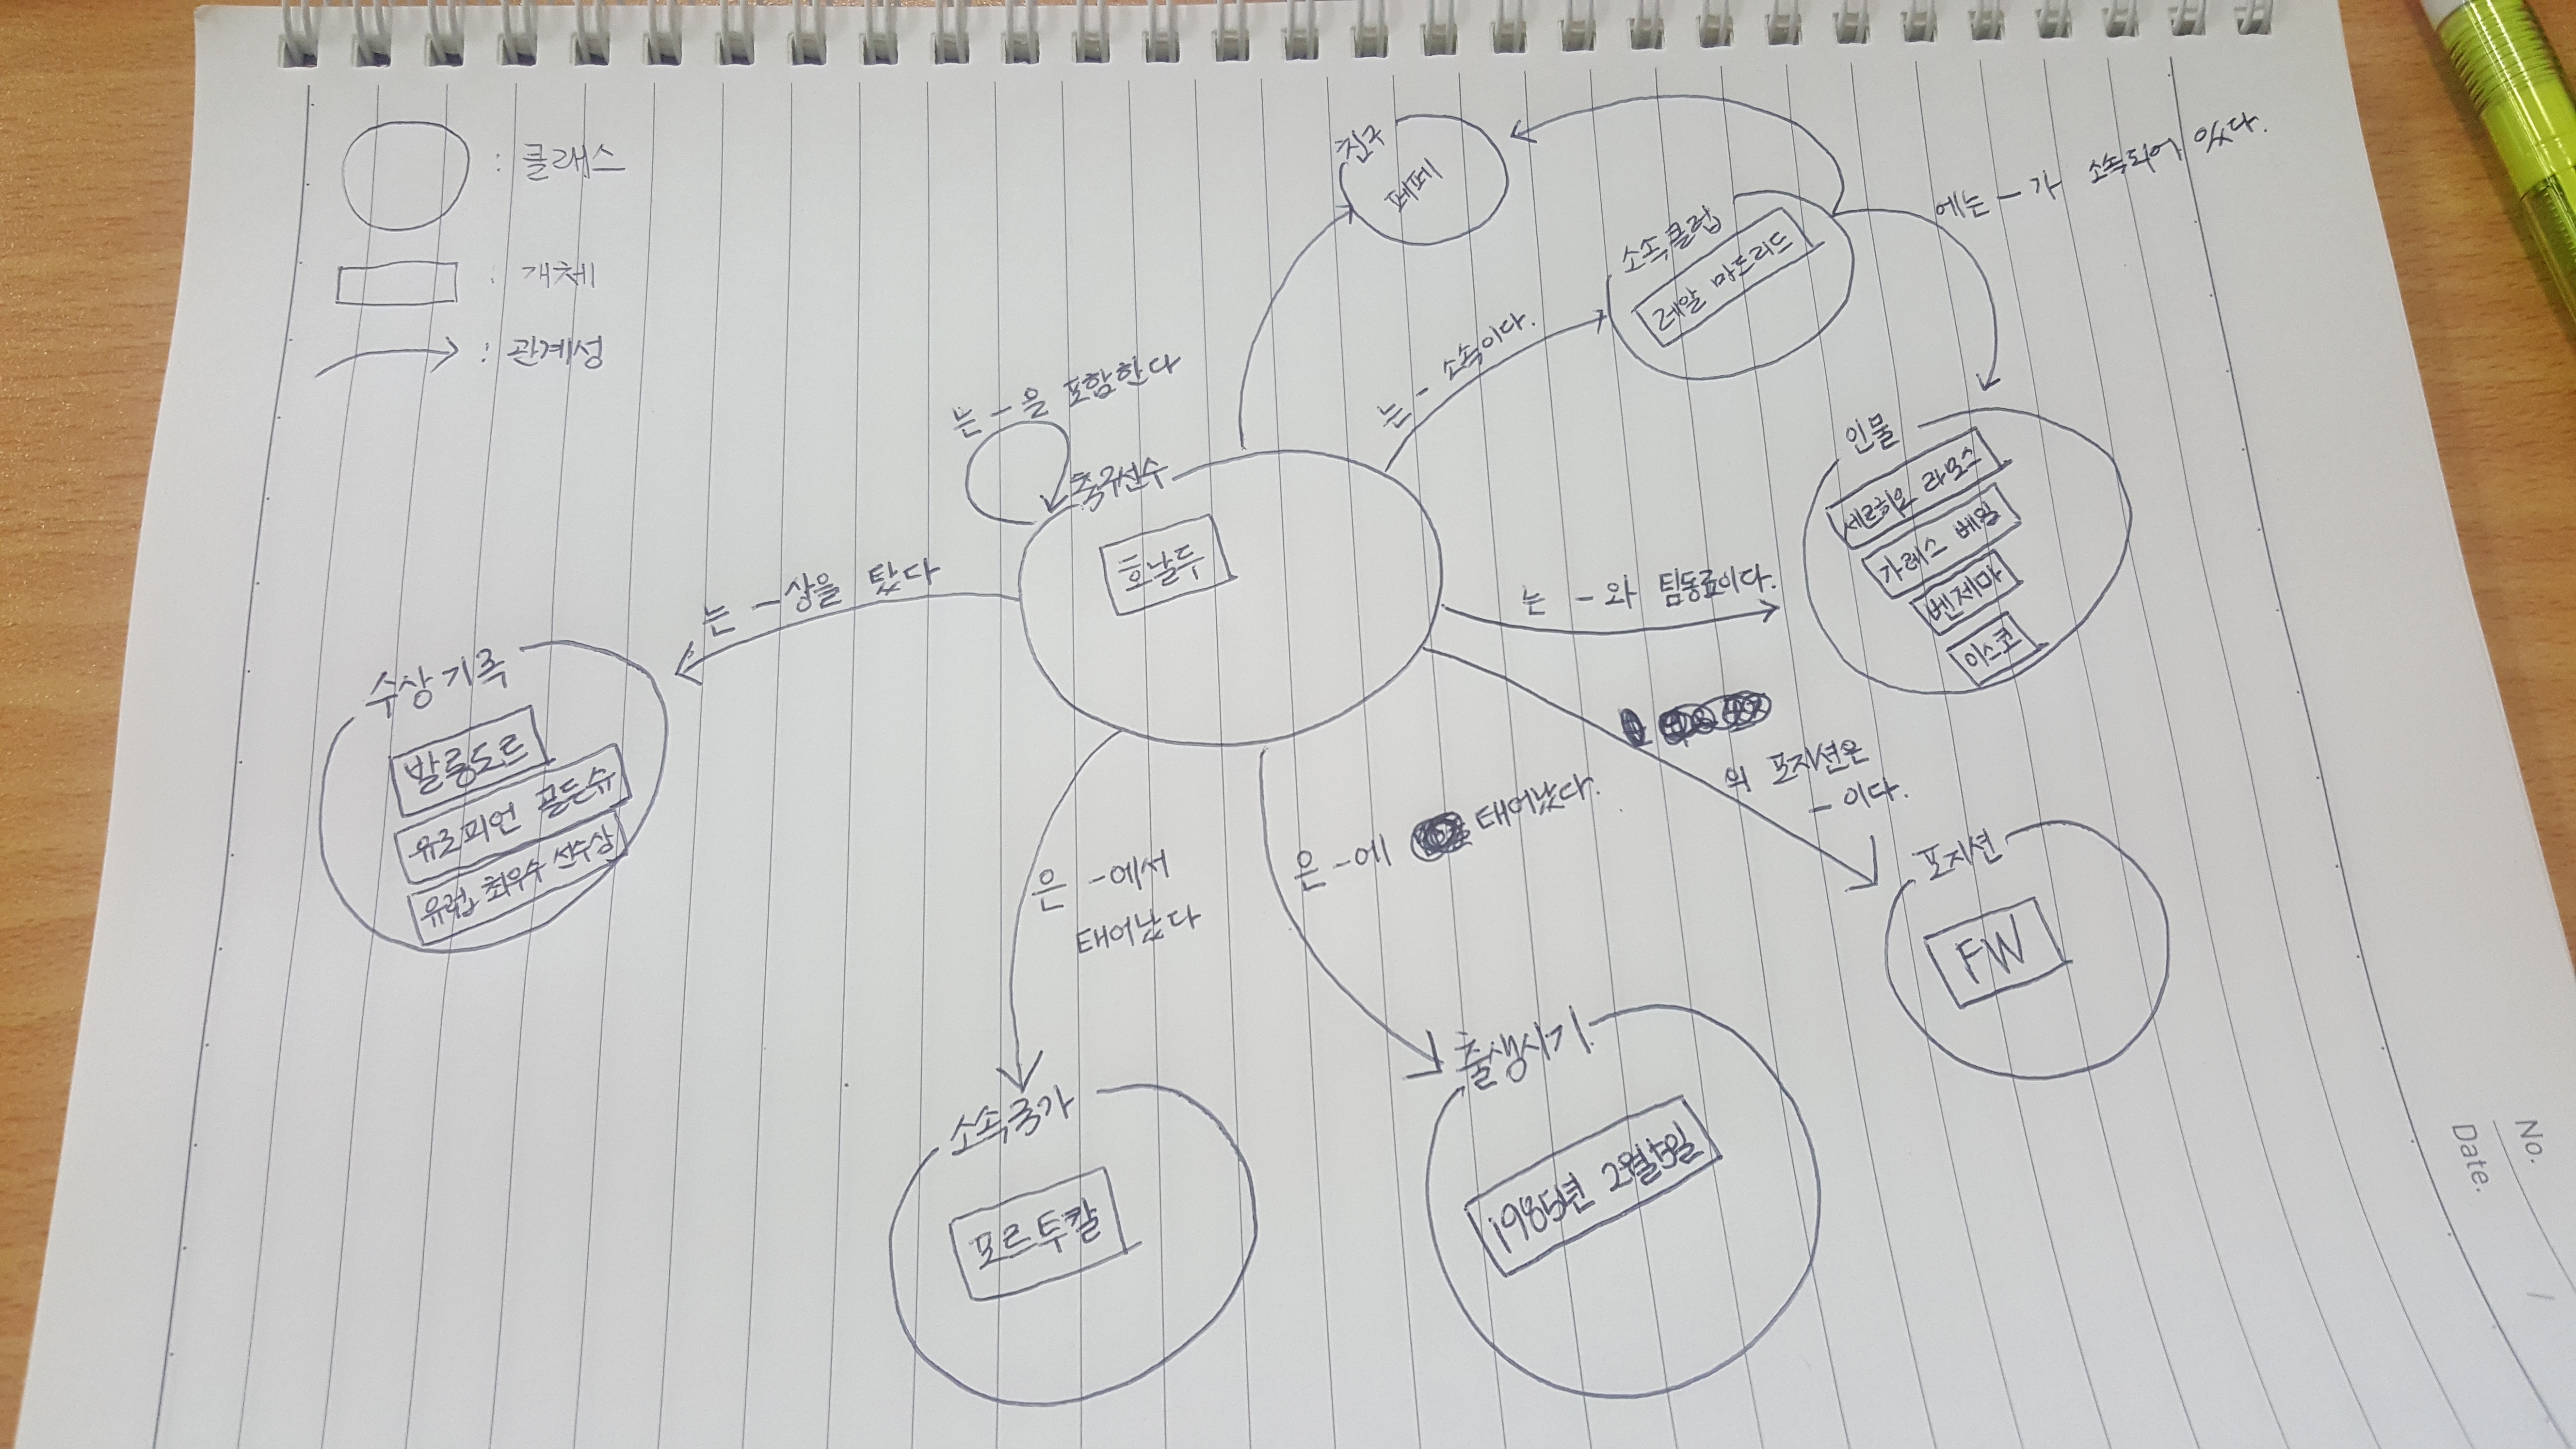 : 클래스
: 개체
: 관계성
친구
페페
에는 - 가 소속되어 있다.
소속클럽
레알 마드리드
는 - 소속이다.
는 - 을 포함한다
축구선수
호날두
인물
세르히오 라모스
가레스 베일
벤제마
이스코
는 - 와 팀동료이다.
는 - 상을 탔다
수상기록
발롱도르
유로피언 골든슈
유럽 최우수 선수상
의 포지션은
- 이다.
포지션
FW
은 - 에 태어났다.
은 - 에서
태어났다
출생시기
1985년 2월 5일
소속국가
포르투칼
No.
Date.